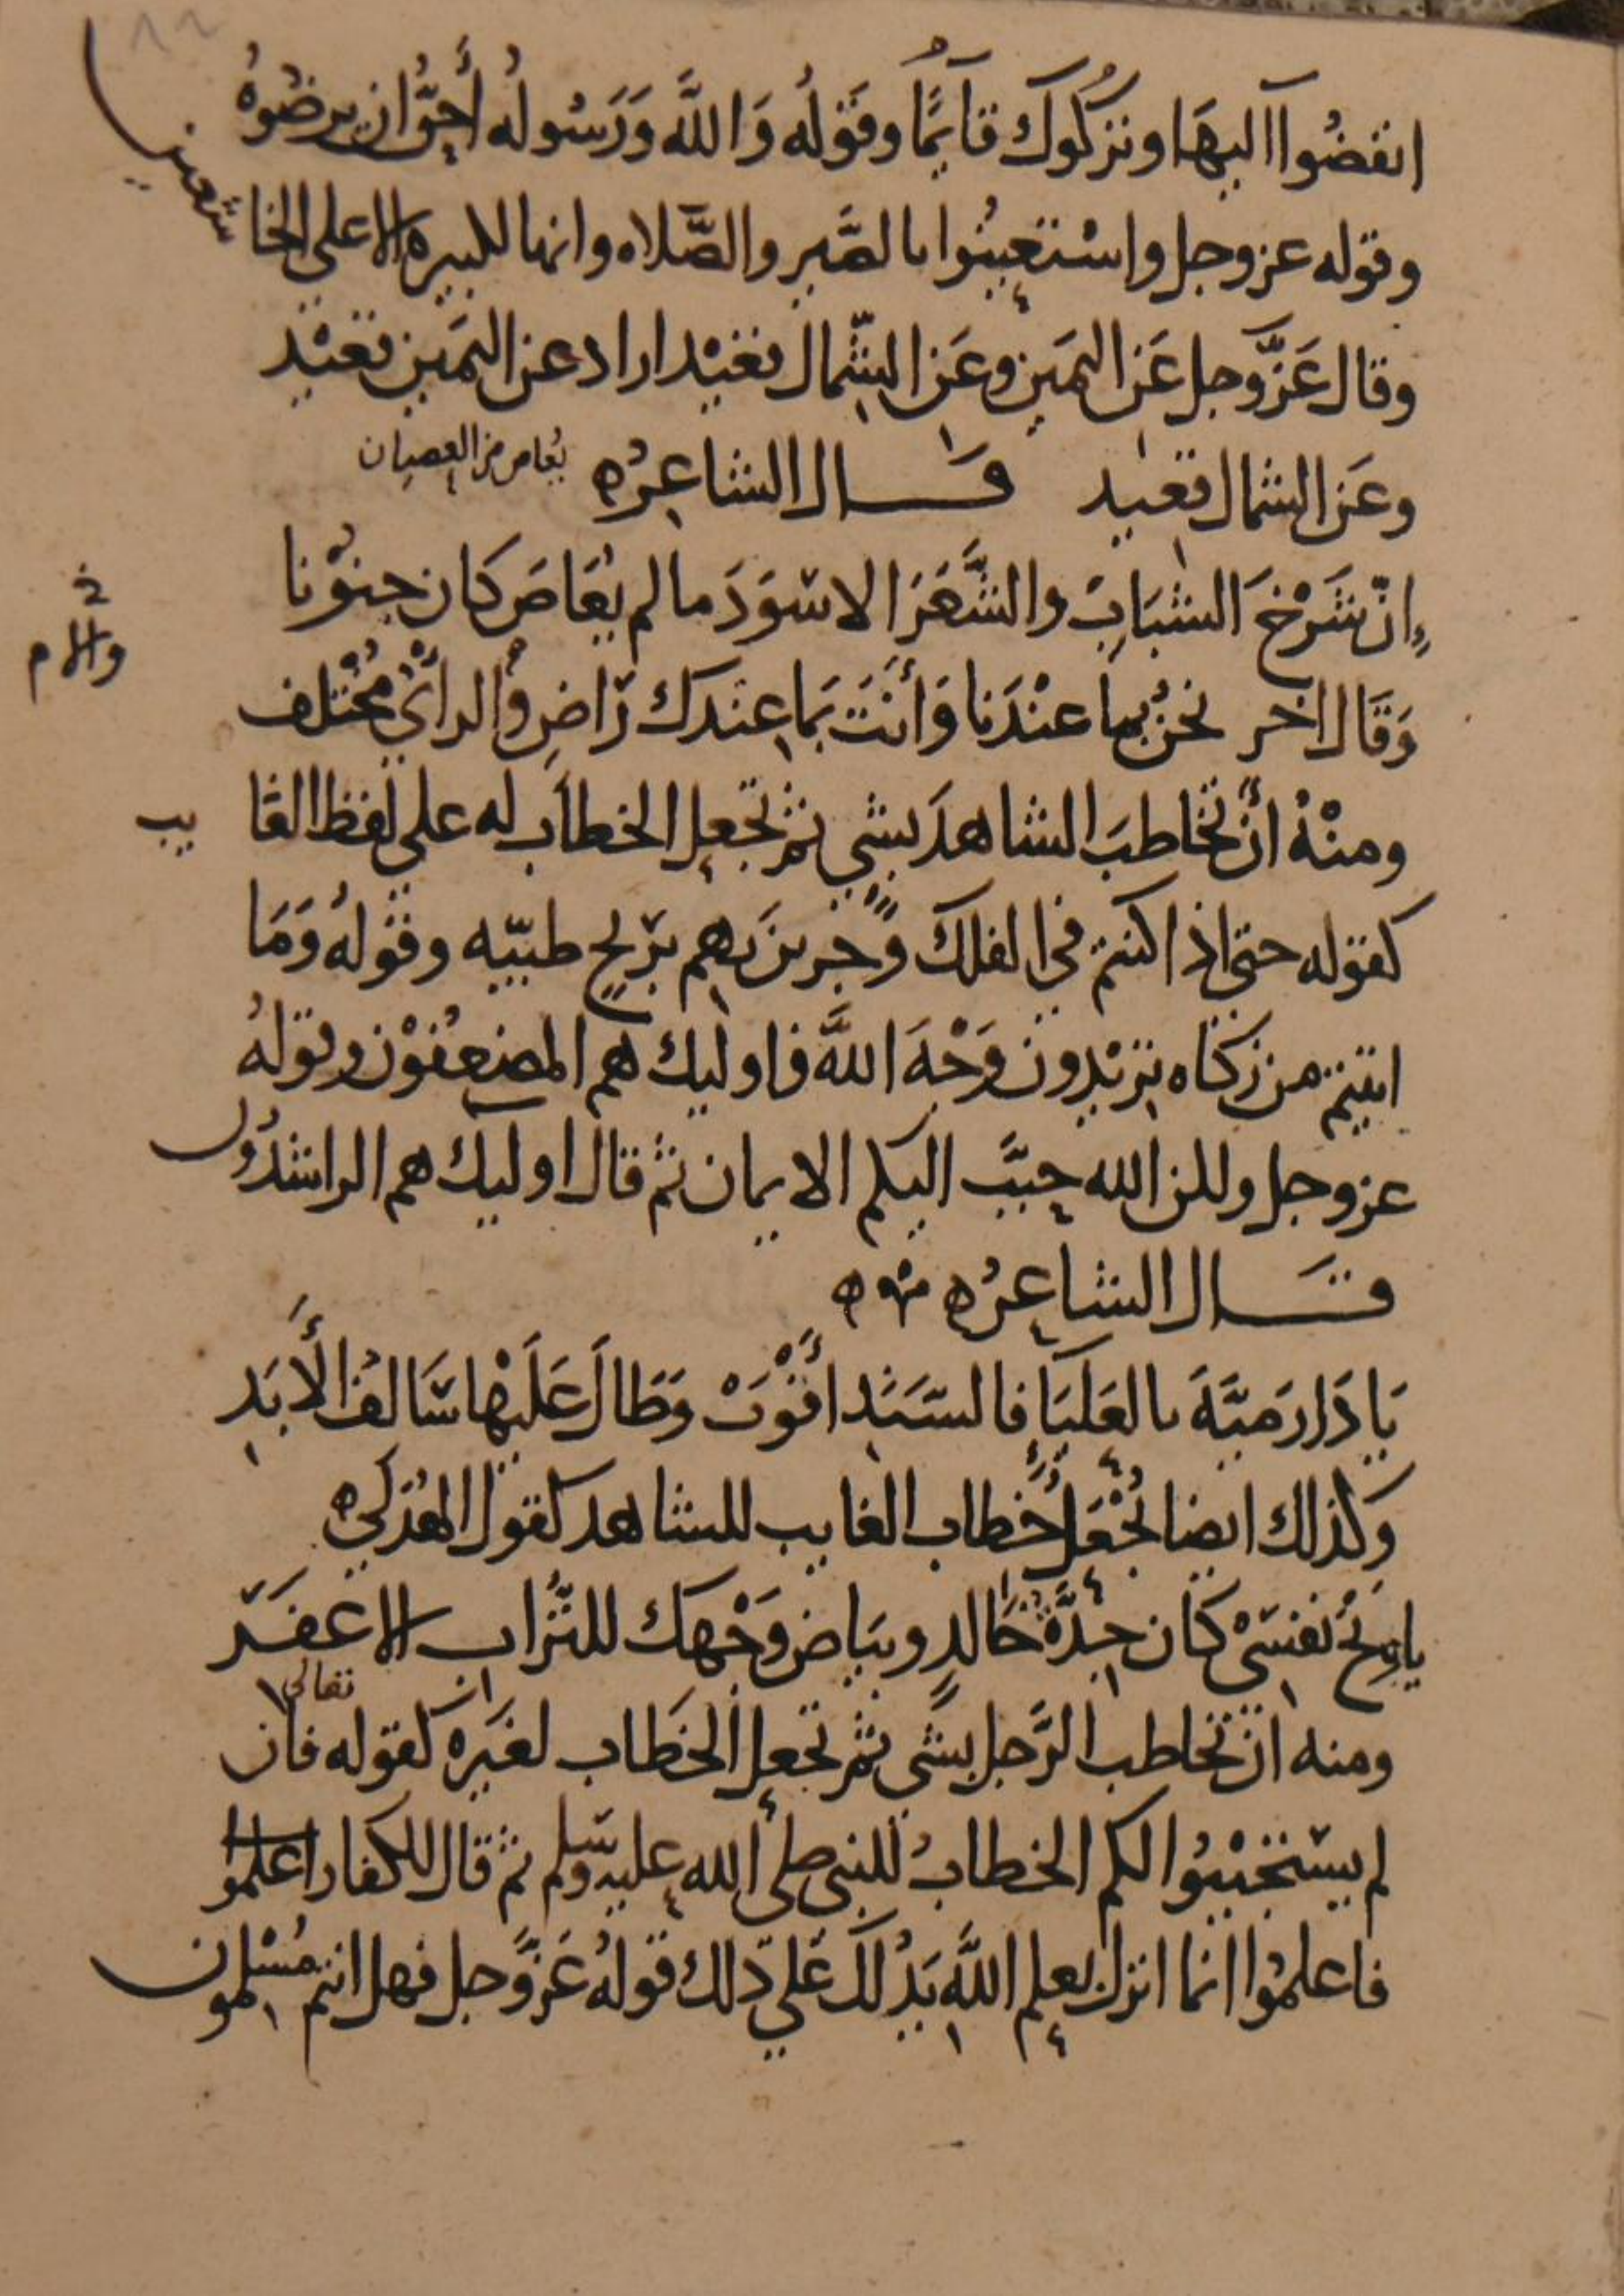 انفضُوآ اليهَا وتركُوكَ قآيمًا وقَولُه وَاللَّه وَرَسُولُه أحَقُّ ان يرضُوهُ
وقوله عز وجل واسْتعينُوا بالصَّبر والصَّلاه وانها لكبيره الا على الخاشعين
وقال عَزَّ وجل عَن اليمَين وعَن الشِّمال قعيْد اراد عن اليمَين قعيْد
وعَن الشمال قعيد قَال الشاعِرُ ه يُعاص من العصيان
إنّ شَرْخَ الشبَابِ والشَّعَرَ الاسْوَدَ ما لم يُعَاصَ كان جنوْنا
وَقَال اخر نحنُ بمِا عنْدَنا وَأنتَ بَما عِندَك رَاضِ والرأيُ مُختلف
والام
ومنْهُ أنْ تخاطبَ الشاهدَ بشي ثم تجعل الخطاَب له على لفظ الغايب
كقوله حتى اذا كنتم في الفلك وَجرينَ بهم بريحٍ طيّبه وقولهُ وَمَا
اتيتم من زكاه تريْدون وَجْهَ اللَّه فاوليك هم المضعفوْن وقولهُ
عز وجل ولكن الله حببَّ اليكم الايمان ثم قال اوليك هم الراشدُون
قَال الشاعِرُ ه
يَا دَارَ مَيَّةَ بالعَليَا فالسَّنَدِ أقْوَتْ وَطَالَ عَلَيْها سَالفُ الأَبَدِ
وكذلك ايضا تُجْعَلُ خطاب الغايب للشاهد كقول الهُذلي ه
يا ويْحَ نفسَىْ كان جِدَّةُ خَالدٍ وبيَاض وَجْهك للتُّرابِ الاعفَر
ومنه ان تخاطب الرَّجل بشَي ثم تجعل الخطَاب لغيَره كقوله تعالى فان
لم يستجيْبُوا لكم الخطابُ للنبي صلى الله عليه وسلم ثم قال للكفار اعلموا
فاعلمُوا انما انزل بعلم اللَّه يَدُلك عَلى ذلك قولهُ عَزَّ وجل فهل انتم مُسْلمون